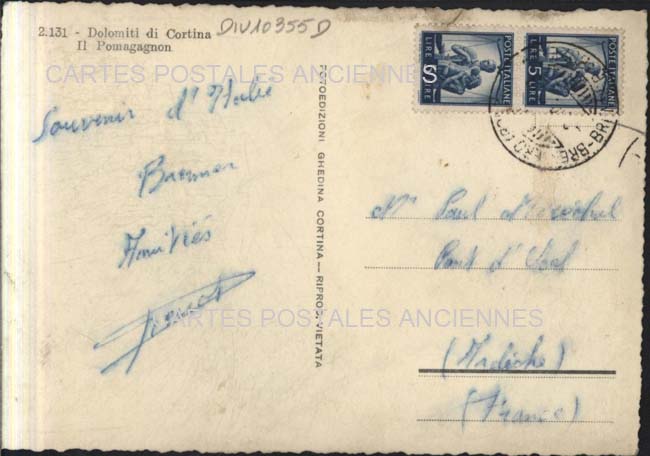 2.131 - Dolomiti di Cortina
Il Pomagagnon
DIV10355D
CARTES POSTALES ANCIENNES
Souvenir d'Italie
Amitiés
FOTOEDIZIONI GHEDINA CORTINA — RIPROD. VIETATA
POSTE ITALIANE
5 LIRE
POSTE ITALIANE
5 LIRE
Mr Paul Maréchal
Pont d'
(Ardèche)
(France)
CARTES POSTALES ANCIENNES